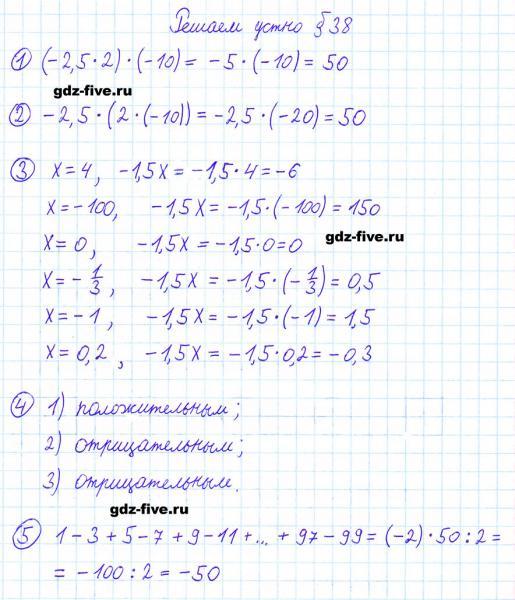 Решаем устно § 38
① (-2,5·2)·(-10) = -5·(-10) = 50
gdz-five.ru
② -2,5·(2·(-10)) = -2,5·(-20) = 50
③ x = 4, -1,5x = -1,5·4 = -6
x = -100, -1,5x = -1,5·(-100) = 150
x = 0, -1,5x = -1,5·0 = 0
gdz-five.ru
x = -1/3, -1,5x = -1,5·(-1/3) = 0,5
x = -1, -1,5x = -1,5·(-1) = 1,5
x = 0,2, -1,5x = -1,5·0,2 = -0,3
④ 1) положительным;
2) отрицательным;
3) отрицательным.
gdz-five.ru
⑤ 1-3+5-7+9-11+...+97-99 = (-2)·50:2 =
= -100:2 = -50